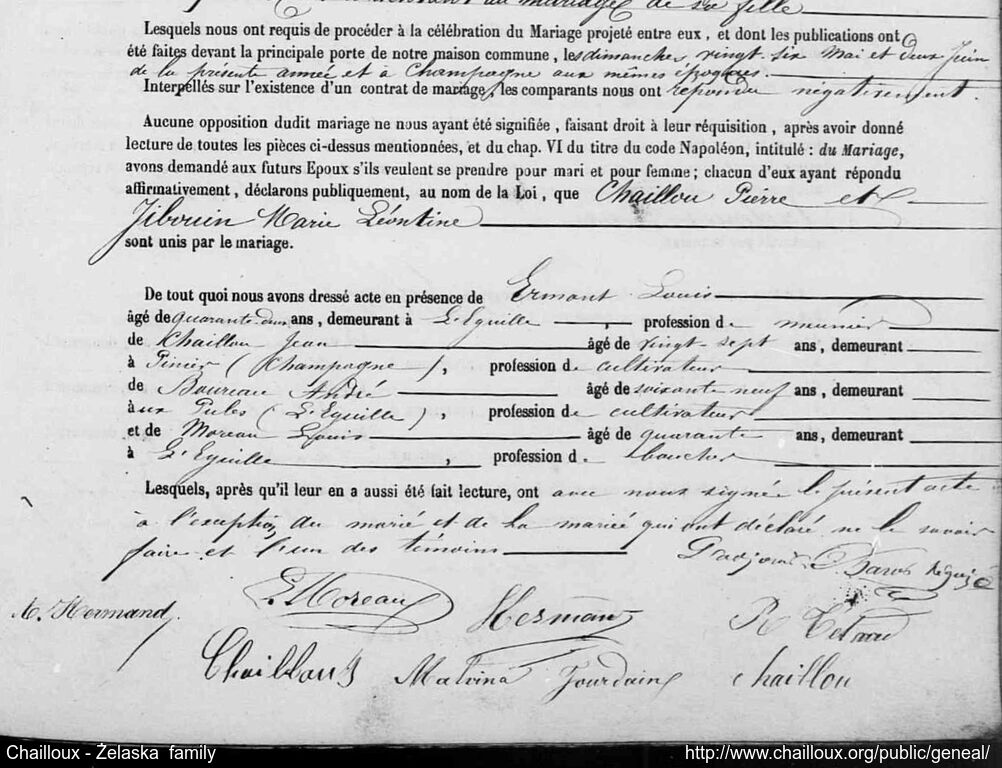 au mariage de sa fille
Lesquels nous ont requis de procéder à la célébration du Mariage projeté entre eux, et dont les publications ont
été faites devant la principale porte de notre maison commune, les dimanches vingt six Mai et deux Juin
de la présente année et à Champagne aux mêmes époques.
Interpellés sur l'existence d'un contrat de mariage, les comparants nous ont répondu négativement.
Aucune opposition dudit mariage ne nous ayant été signifiée, faisant droit à leur réquisition, après avoir donné
lecture de toutes les pièces ci-dessus mentionnées, et du chap. VI du titre du code Napoléon, intitulé : du Mariage,
avons demandé aux futurs Epoux s'ils veulent se prendre pour mari et pour femme; chacun d'eux ayant répondu
affirmativement, déclarons publiquement, au nom de la Loi, que Chaillou Pierre et
Jibouin Marie Léontine
sont unis par le mariage.
De tout quoi nous avons dressé acte en présence de Ermant Louis
âgé de quarante deux ans, demeurant à L'Eguille, profession de meunier
de Chaillou Jean âgé de vingt-sept ans, demeurant
à Pinier (Champagne), profession de cultivateur
de Boureau André âgé de soixante neuf ans, demeurant
aux Pibles (L'Eguille), profession de cultivateur
et de Moreau Louis âgé de quarante ans, demeurant
à L'Eguille, profession de boucher
Lesquels, après qu'il leur en a aussi été fait lecture, ont avec nous signé le présent acte
à l'exception du marié et de la mariée qui ont déclaré ne le savoir
faire et l'un des témoins
L. Moreau
A. Hermand Herman R
Chailloux Malvina Jourdain Chaillou
Chailloux - Żelaska family
http://www.chailloux.org/public/geneal/